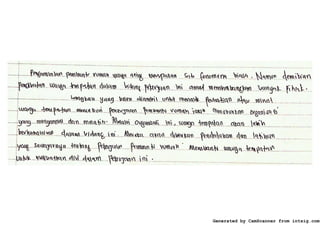 Pengambilan pembantu rumah warga asing merupakan satu fenomena biasa. Namun demikian
penglibatan warga tempatan dalam bidang pekerjaan ini amat membimbangkan banyak pihak.
Langkah yang harus diambil untuk menarik perhatian atau minat
warga tempatan menceburi pekerjaan pembantu rumah ialah organisasi
yang mengambil dan melatih. Melalui organisasi ini, warga tempatan akan lebih
berkemahiran dalam bidang ini. Mereka akan diberikan pendidikan dan latihan
yang secukupnya tentang pekerjaan pembantu rumah. Membantu warga tempatan
untuk dalam pekerjaan ini.
Generated by CamScanner from intsig.com